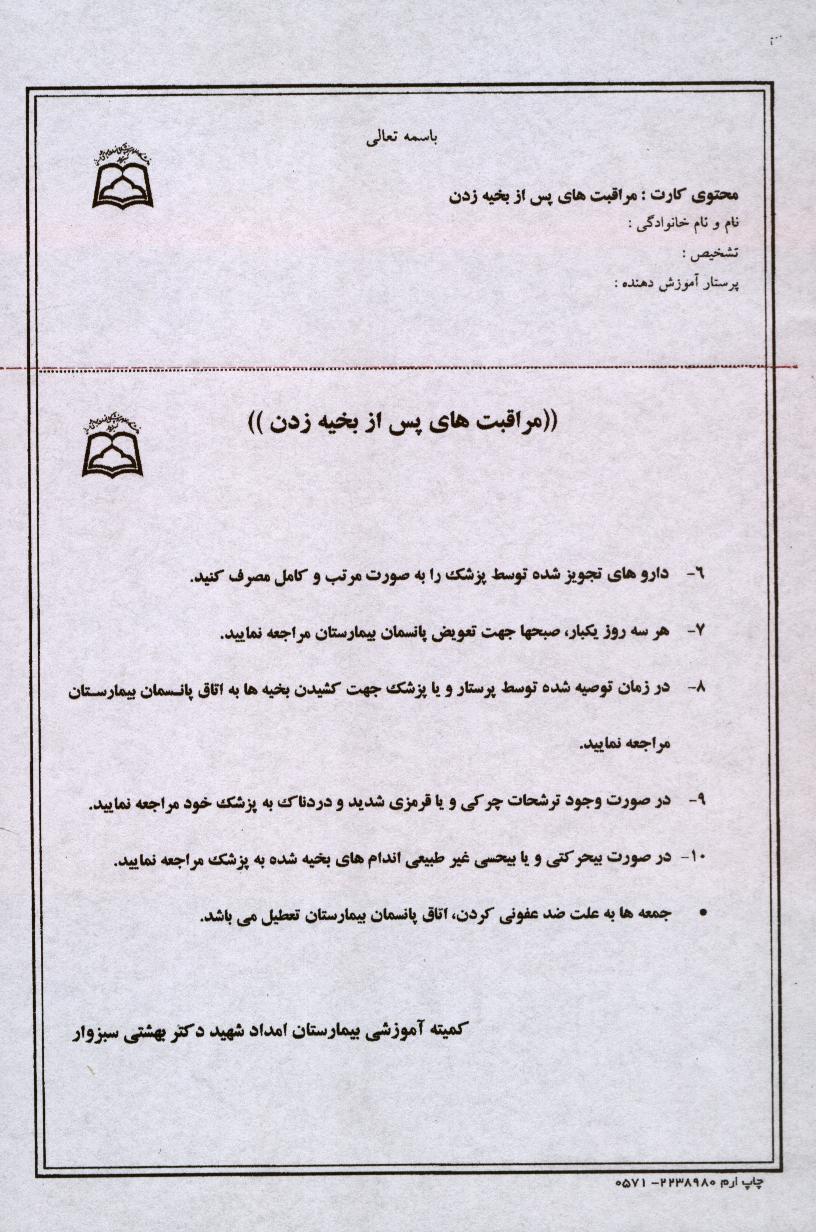 باسمه تعالی
محتوی کارت : مراقبت های پس از بخیه زدن
نام و نام خانوادگی :
تشخیص :
پرستار آموزش دهنده :
((مراقبت های پس از بخیه زدن ))
۶- دارو های تجویز شده توسط پزشک را به صورت مرتب و کامل مصرف کنید.
۷- هر سه روز یکبار، صبحها جهت تعویض پانسمان بیمارستان مراجعه نمایید.
۸- در زمان توصیه شده توسط پرستار و یا پزشک جهت کشیدن بخیه ها به اتاق پانسمان بیمارستان
مراجعه نمایید.
۹- در صورت وجود ترشحات چرکی و یا قرمزی شدید و دردناک به پزشک خود مراجعه نمایید.
۱۰- در صورت بیحرکتی و یا بیحسی غیر طبیعی اندام های بخیه شده به پزشک مراجعه نمایید.
• جمعه ها به علت ضد عفونی کردن، اتاق پانسمان بیمارستان تعطیل می باشد.
کمیته آموزشی بیمارستان امداد شهید دکتر بهشتی سبزوار
چاپ ارم ۲۲۳۸۹۸۰-۰۵۷۱